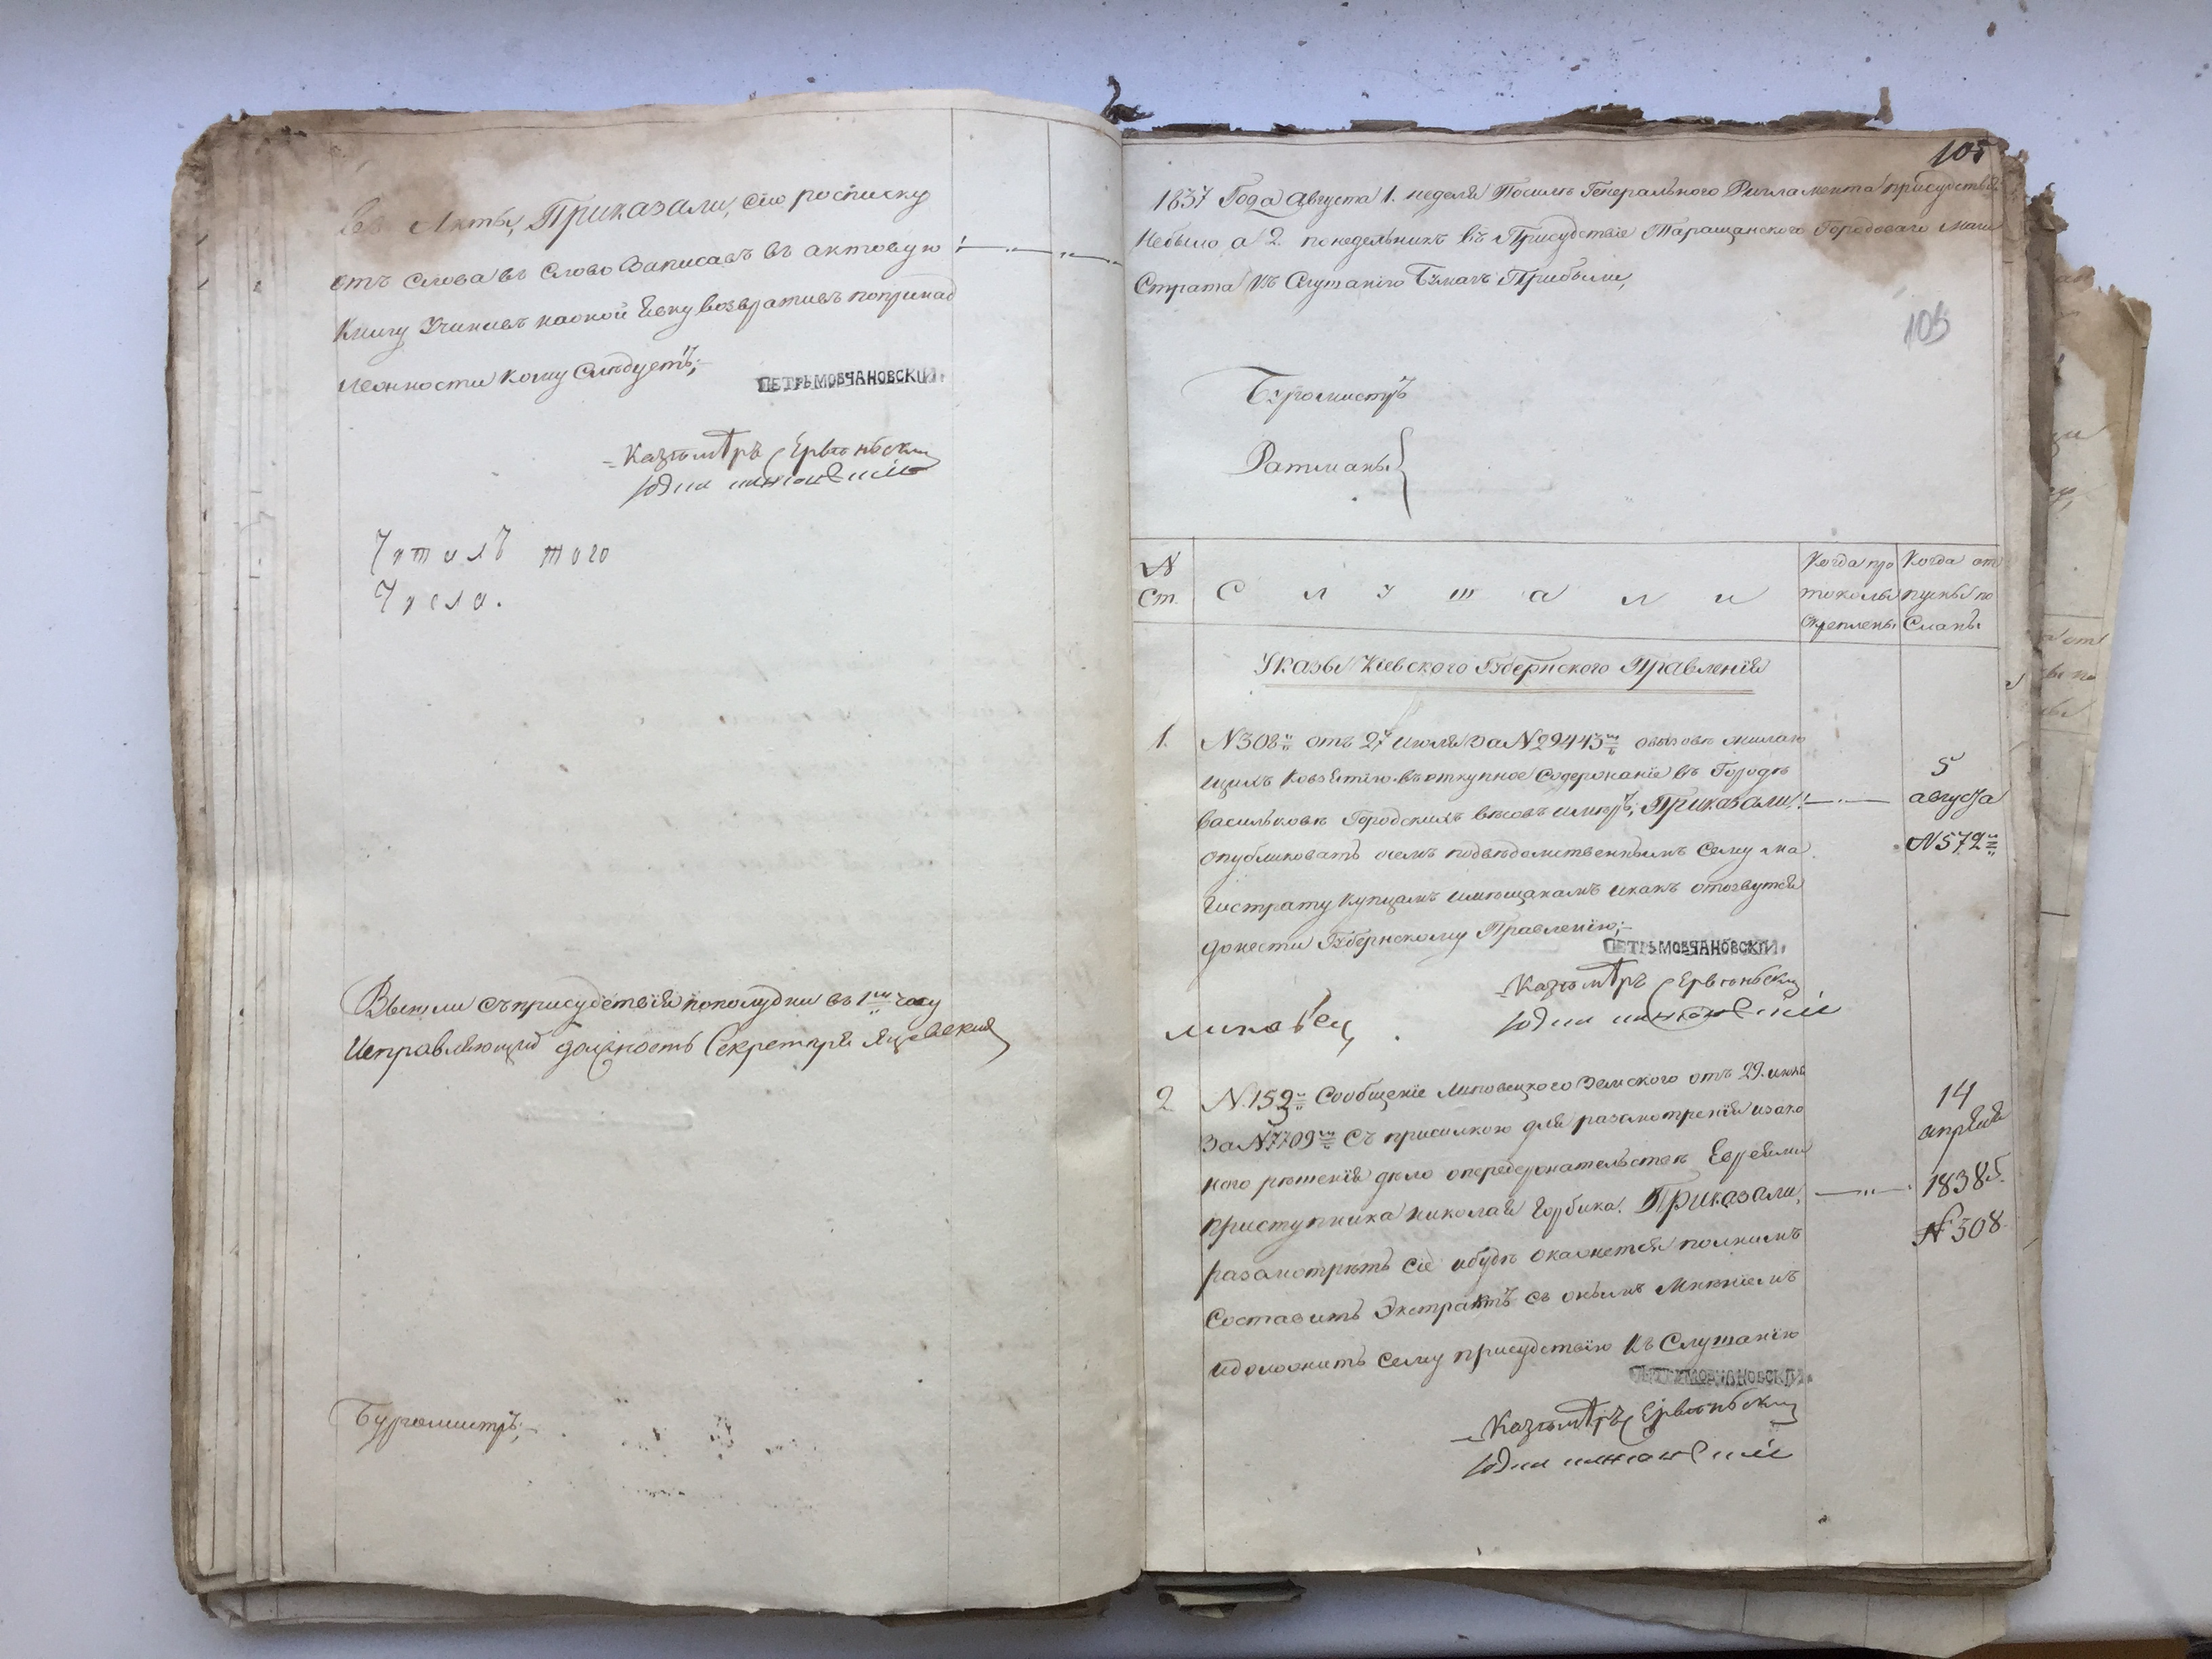 въ Акты, Приказали, сію росписку
отъ слова въ слово Записавъ въ актовую
Книгу Учинивъ наоной Евку возвративъ попринад
лежности кому Слѣдуетъ;
ПЕТРЬ МОВЧАНОВСКІЙ
Казѣмѣръ
Читалъ того
Числа.
Вышли съ присудствія пополудни въ 1м часу
Исправляющій должность Секретаря
Бургомистръ;
105
1837 Года Августа 1. неделя Посилѣ Генерального Регламента присудствія
Небыло, а 2. понедельникъ въ Присудствіе Таращанского Городоваго маги
Страта Къ Слушанію Бумагъ Прибыли,
105
Бурмистръ
Ратманы
N Ст.
С л у ш а л и
Когда про токолы скреплены
Когда от пуски по Сланы
Указы Кіевского Губернского Правленія
1. N308й отъ 27 Июля За N29443м овызовѣ желаю
щихъ Ковзятію въ откупное Содержаніе въ Городѣ
Васильковѣ Городскихъ вѣсовъ имѣръ; Приказали!
опубликовать очемъ подвѣдомственнымъ Сему ма
гистрату Купцамъ имѣщанамъ икакъ отозвутся
донести Губернскому Правленію;
5
августа
N572й
ПЕТРЬ МОВЧАНОВСКІЙ
Казѣмѣръ
липовец
2 N.152й Сообщеніе Липовецкого Земского отъ 29. июня
За N7709м Съ присылкою для разсмотренія изако
ного рѣшенія дѣло опередержательствѣ Евреями
приступника николая Горбика. Приказали,
разсмотрѣть сіе ибудѣ окажется полнымъ
Составить Экстрактъ съ онымъ Мнѣніемъ
идоложить сему присудствію Къ Слушанію
14
апреля
1838г.
N308
ПЕТРЬ МОВЧАНОВСКІЙ
Казѣмѣръ